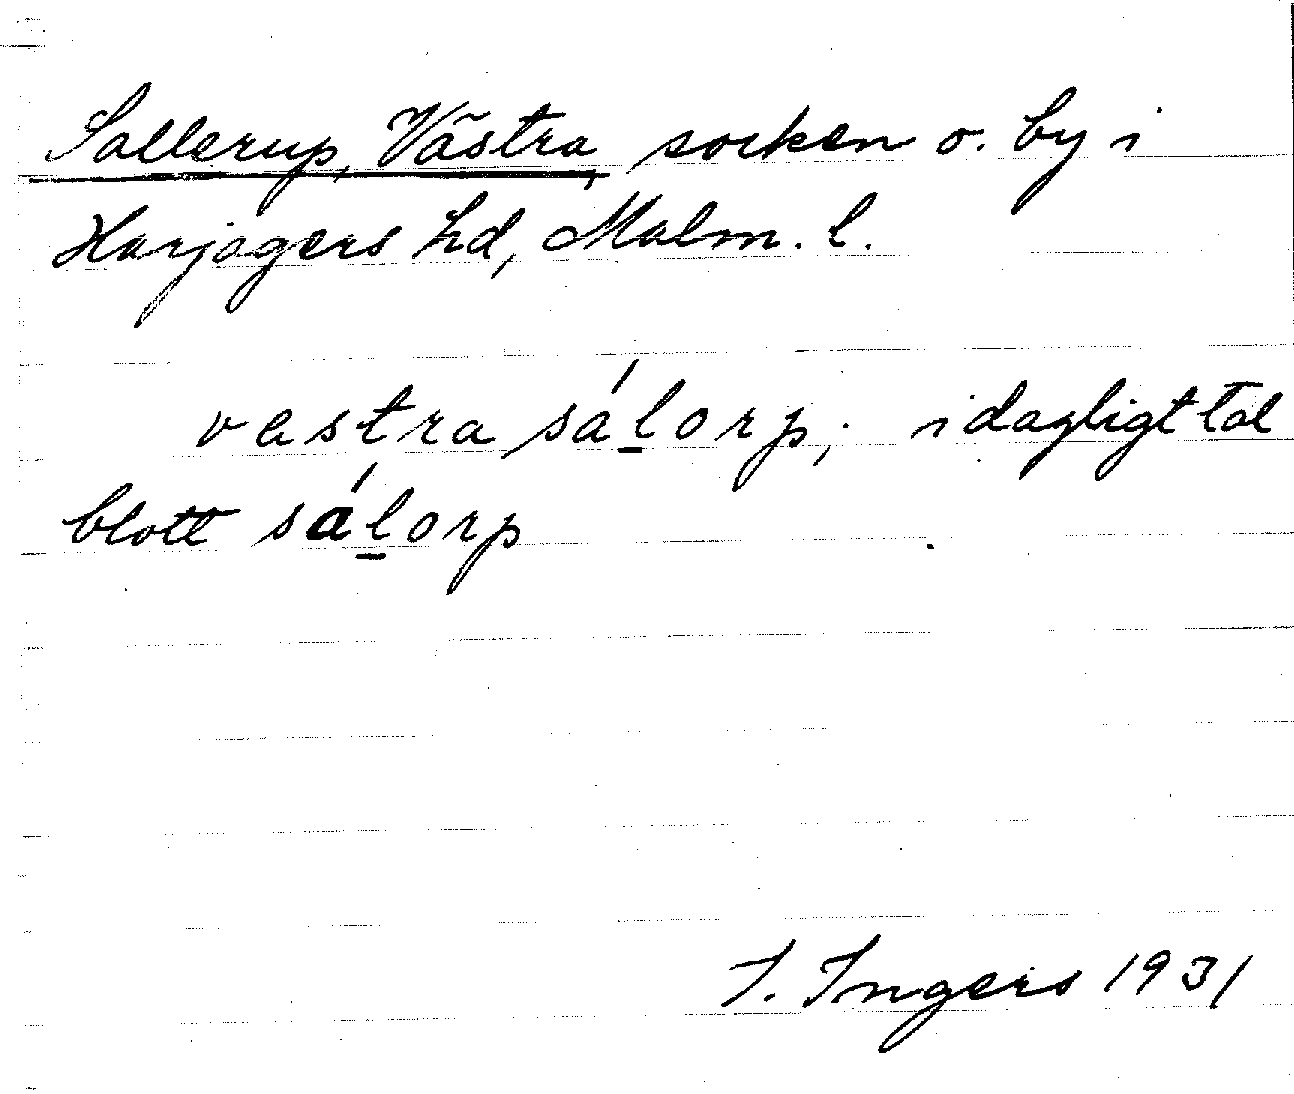 Sallerup, Västra, socken o. by i
Harjagers hd, Malm. l.
vastra sál̲orp; i dagligt tal
blott sál̲orp
I. Ingers 1931